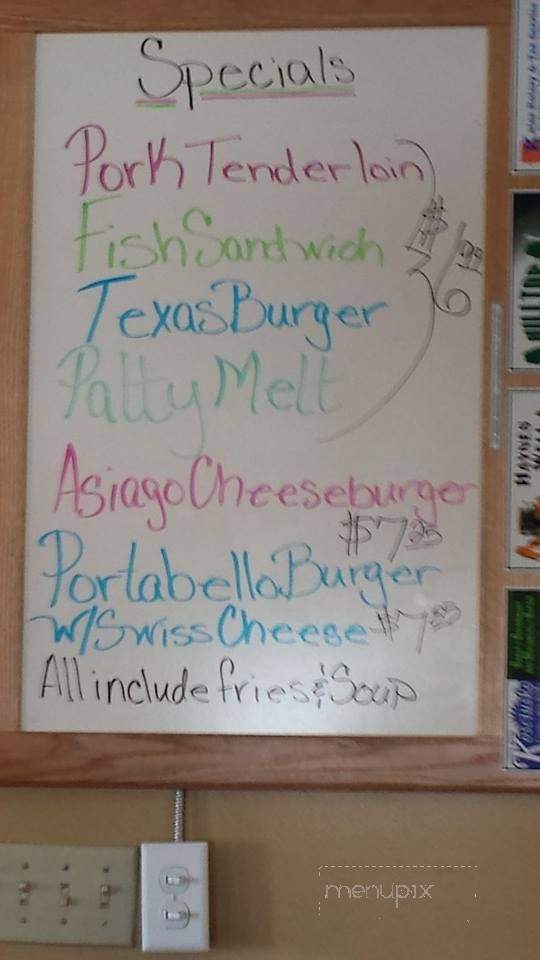 Specials
Pork Tenderloin
Fish Sandwich
$6.99
Texas Burger
Patty Melt
Asiago Cheeseburger
$7.25
Portabella Burger
w/Swiss Cheese $7
All include fries & Soup
menupix